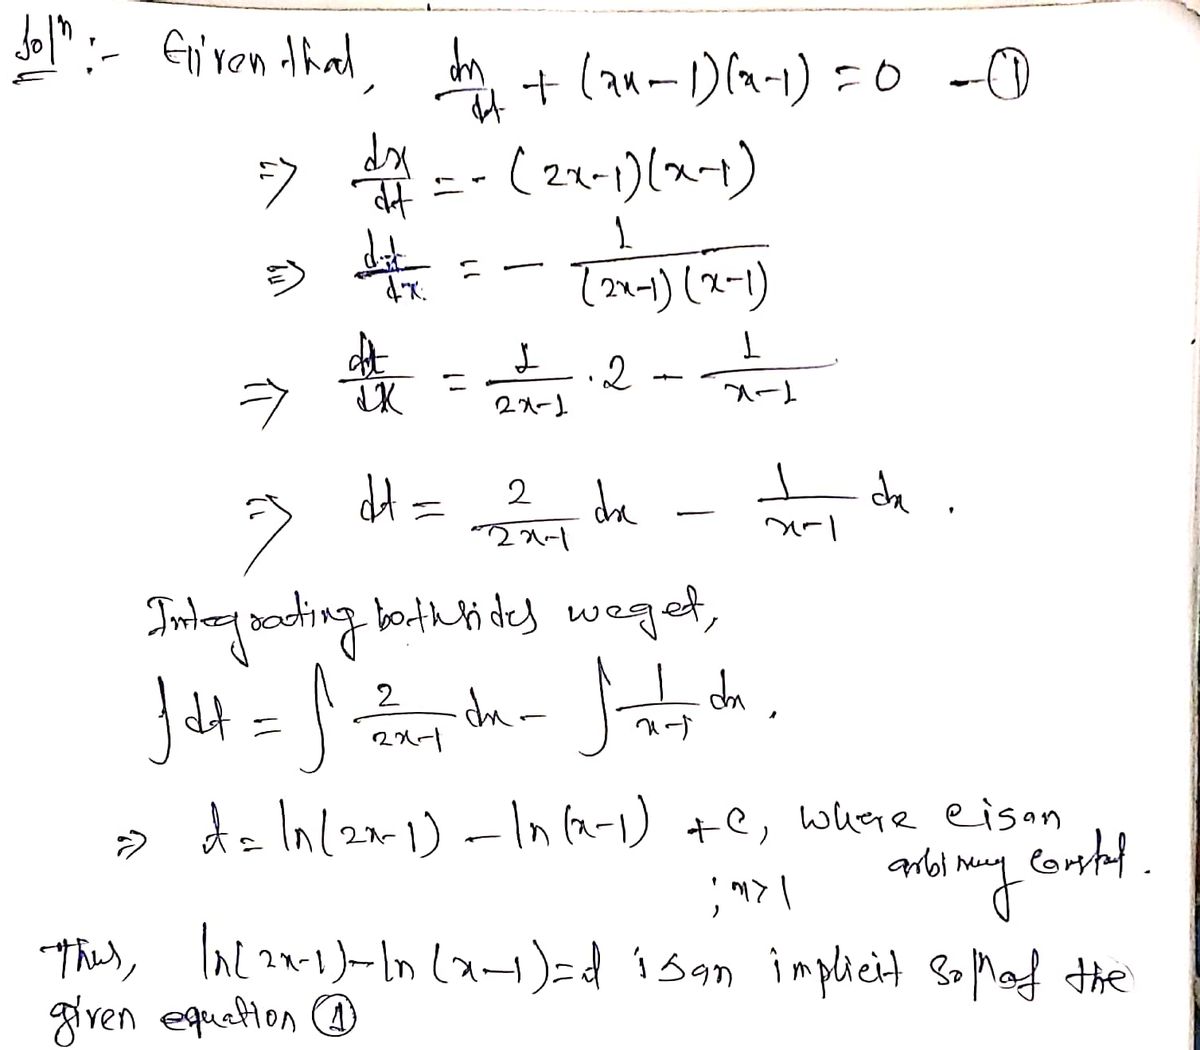 Solⁿ :- Given that, dx/dt + (2x-1)(x-1) = 0 -①
=> dx/dt = -(2x-1)(x-1)
=> dt/dx = - 1/((2x-1)(x-1))
=> dt/dx = 1/(2x-1) .2 - 1/(x-1)
=> dt = 2/(2x-1) dx - 1/(x-1) dx .
Integrating both sides we get,
∫dt = ∫ 2/(2x-1) dx - ∫ 1/(x-1) dx .
=> t = ln(2x-1) - ln(x-1) + c, where c is an
arbitrary constant.
; x>1
Thus, ln(2x-1)-ln(x-1)=t is an implicit solⁿ of the
given equation ①